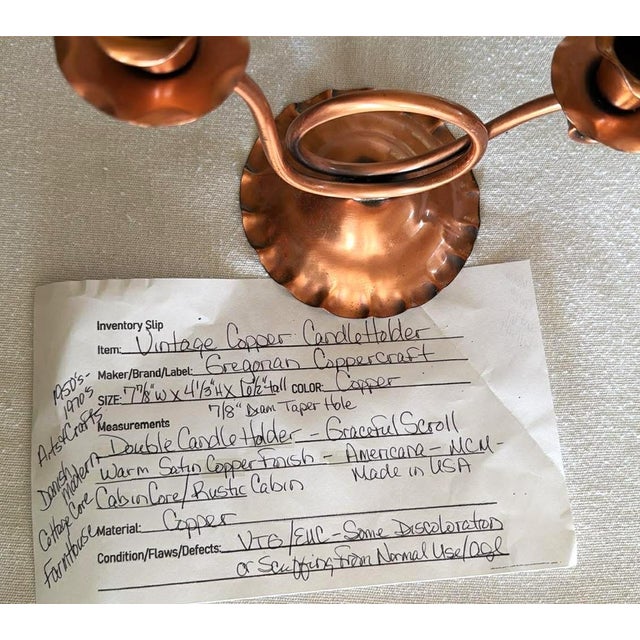 Inventory Slip
Item: Vintage Copper CandleHolder
Maker/Brand/Label: Gregorian Coppercraft
SIZE: 7 7/8" W x 4 1/3" H x 6 1/2" tall COLOR: Copper
7/8" Diam Taper Hole
Measurements
Double Candle Holder - Graceful Scroll
Warm Satin Copper Finish - Americana - MCM -
CabinCore/Rustic Cabin Made in USA
Material: Copper
Condition/Flaws/Defects: VTG/EUC - Some Discoloration
or Scuffing From Normal Use/Age
1950's-
1970's
Arts&Crafts
Danish
Modern
CottageCore
Farmhouse